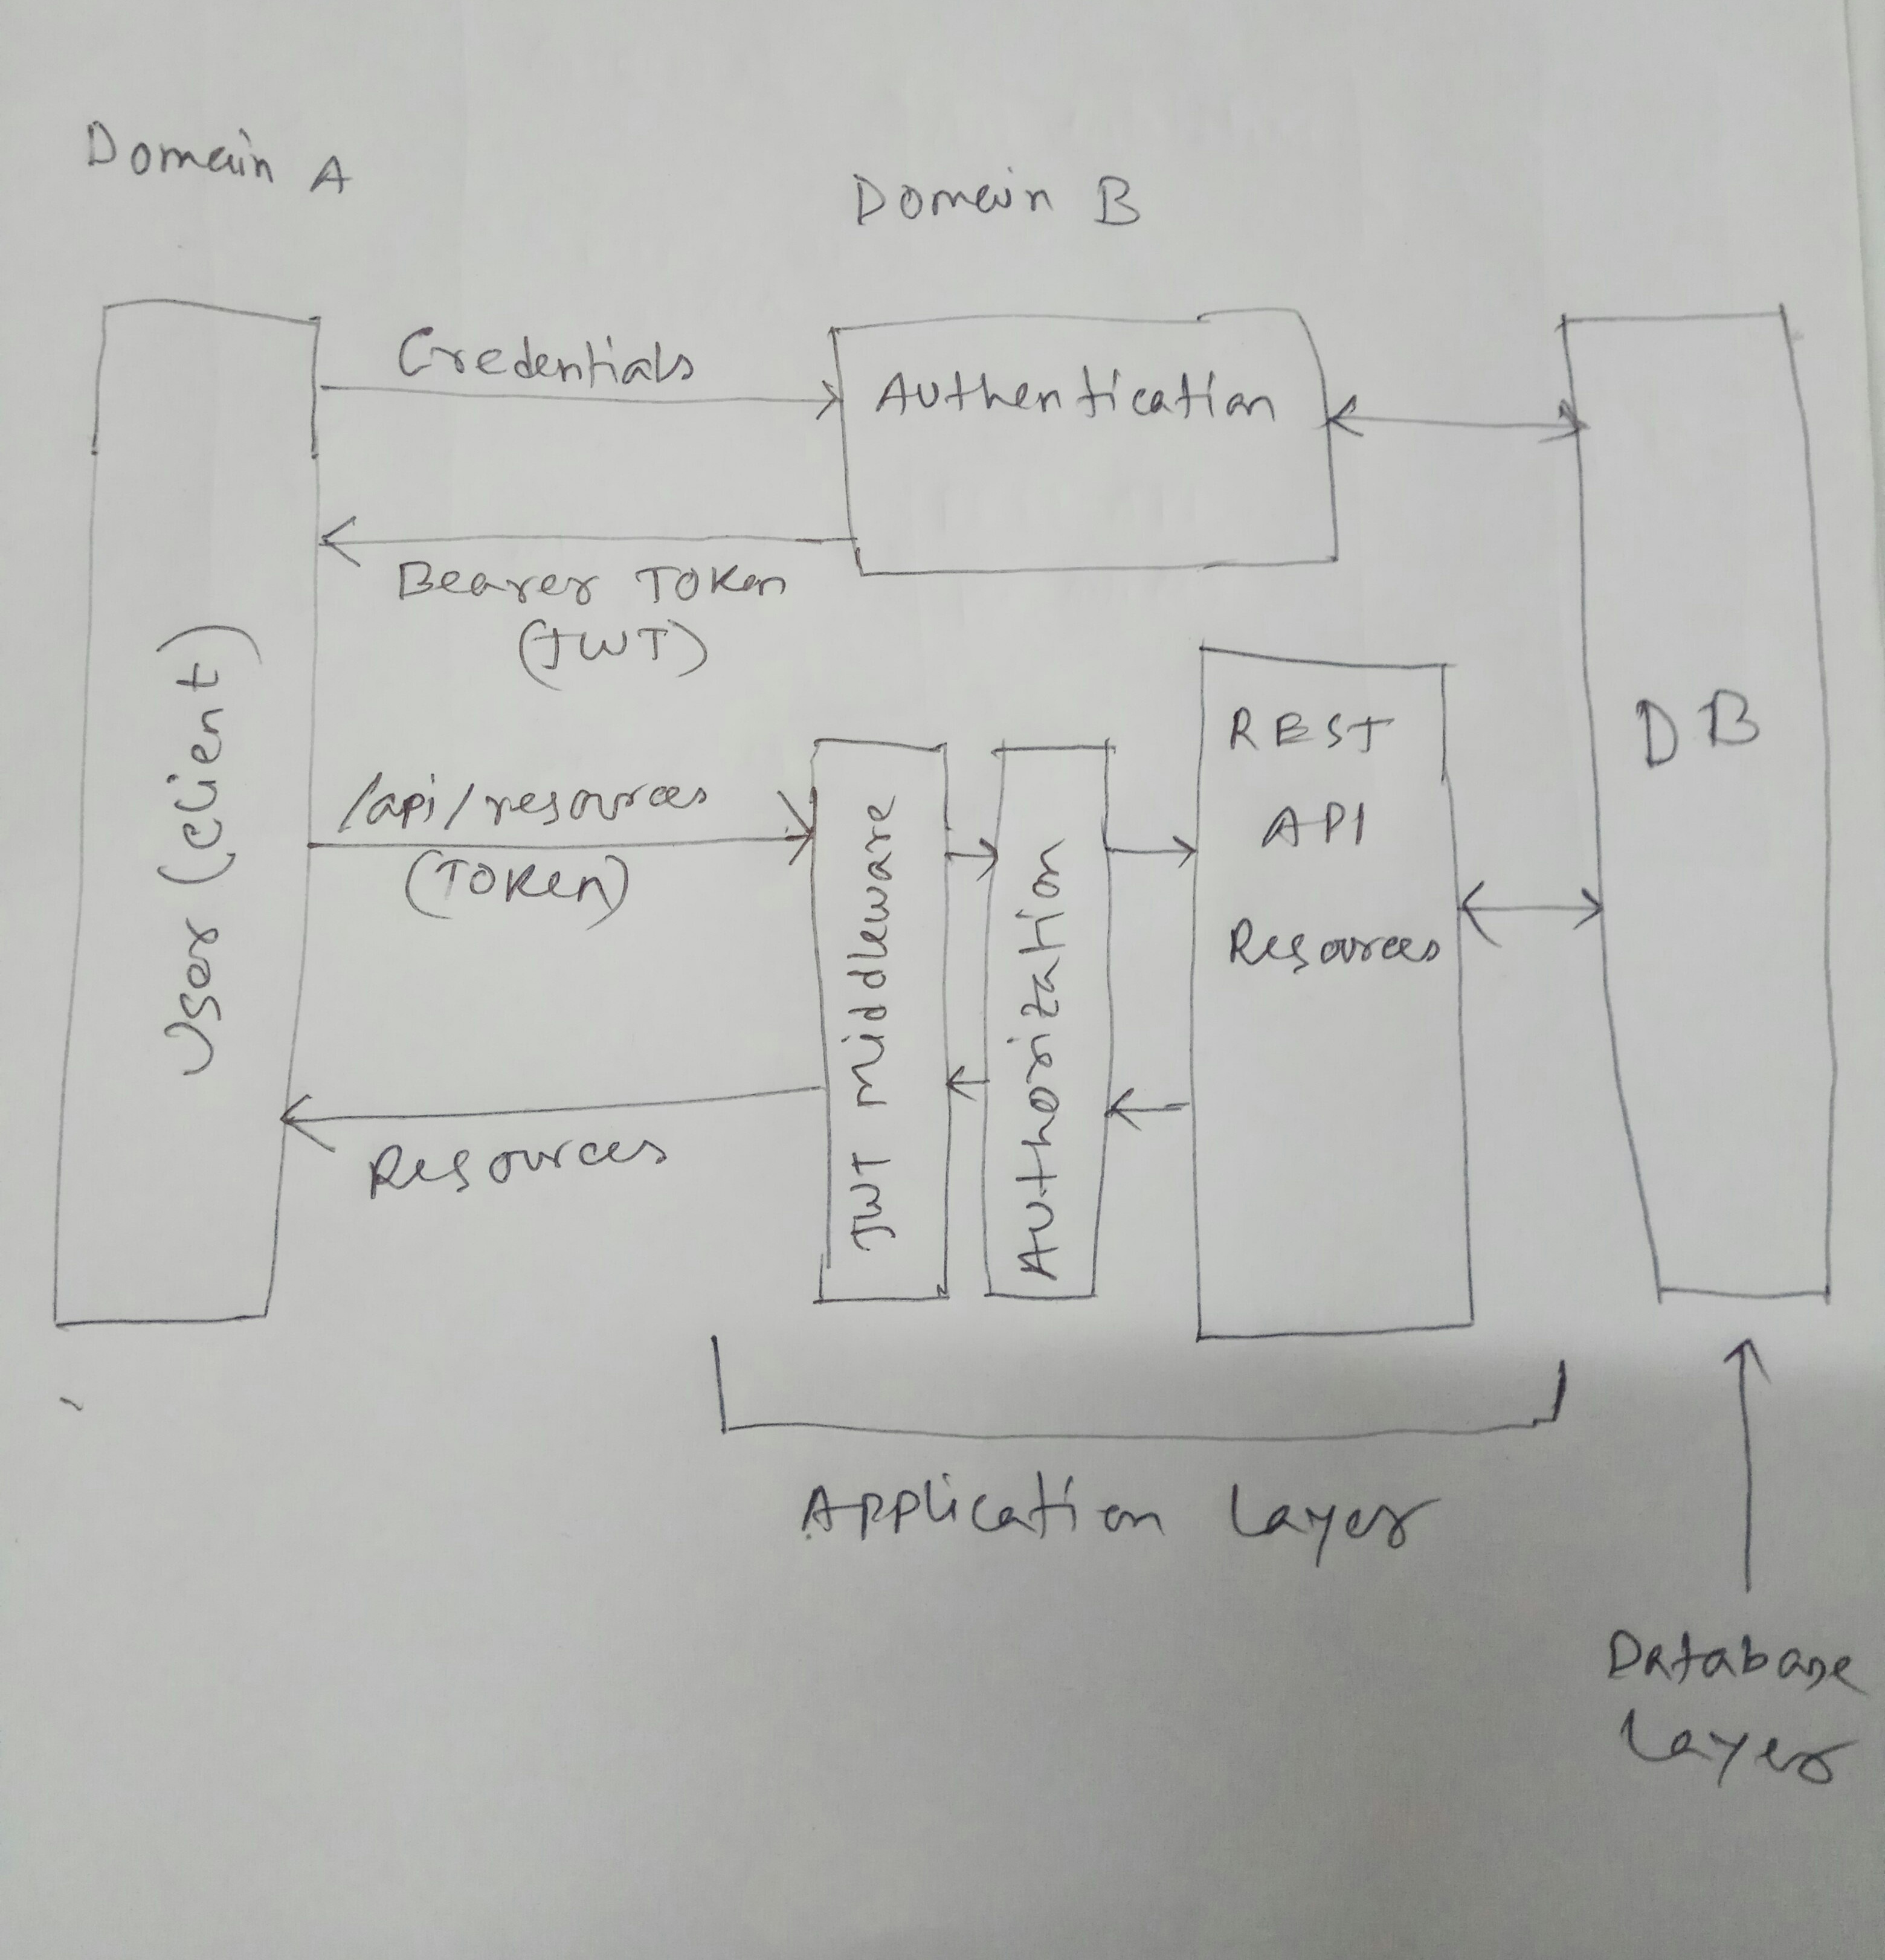 Domain A
Domain B
Credentials
Authentication
Bearer Token
(JWT)
User (client)
/api/resources
(Token)
Resources
JWT Middleware
Authorization
REST
API
Resources
DB
Application Layer
Database
Layer